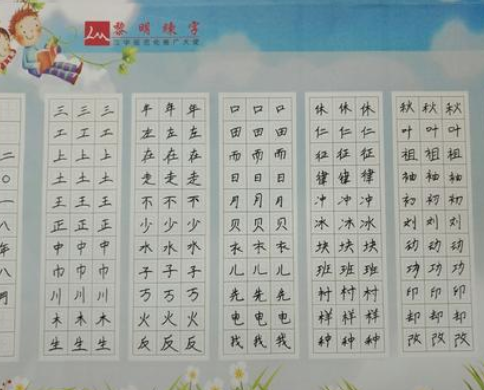 黎明练字
三三三 年年年 口口口 休休休 秋秋秋
工工工 左左左 田田田 仁仁仁 叶叶叶
上上上 在在在 而而而 征征征 祖祖祖
二 土土土 走走走 日日日 律律律 袖袖袖
〇 王王王 不不不 月月月 冲冲冲 初初初
一 正正正 少少少 贝贝贝 冰冰冰 刘刘刘
八 中中中 水水水 衣衣衣 块块块 动动动
年 巾巾巾 子子子 儿儿儿 班班班 功功功
八 川川川 万万万 先先先 村村村 印印印
月 木木木 火火火 电电电 样样样 却却却
生生生 反反反 我我我 种种种 改改改